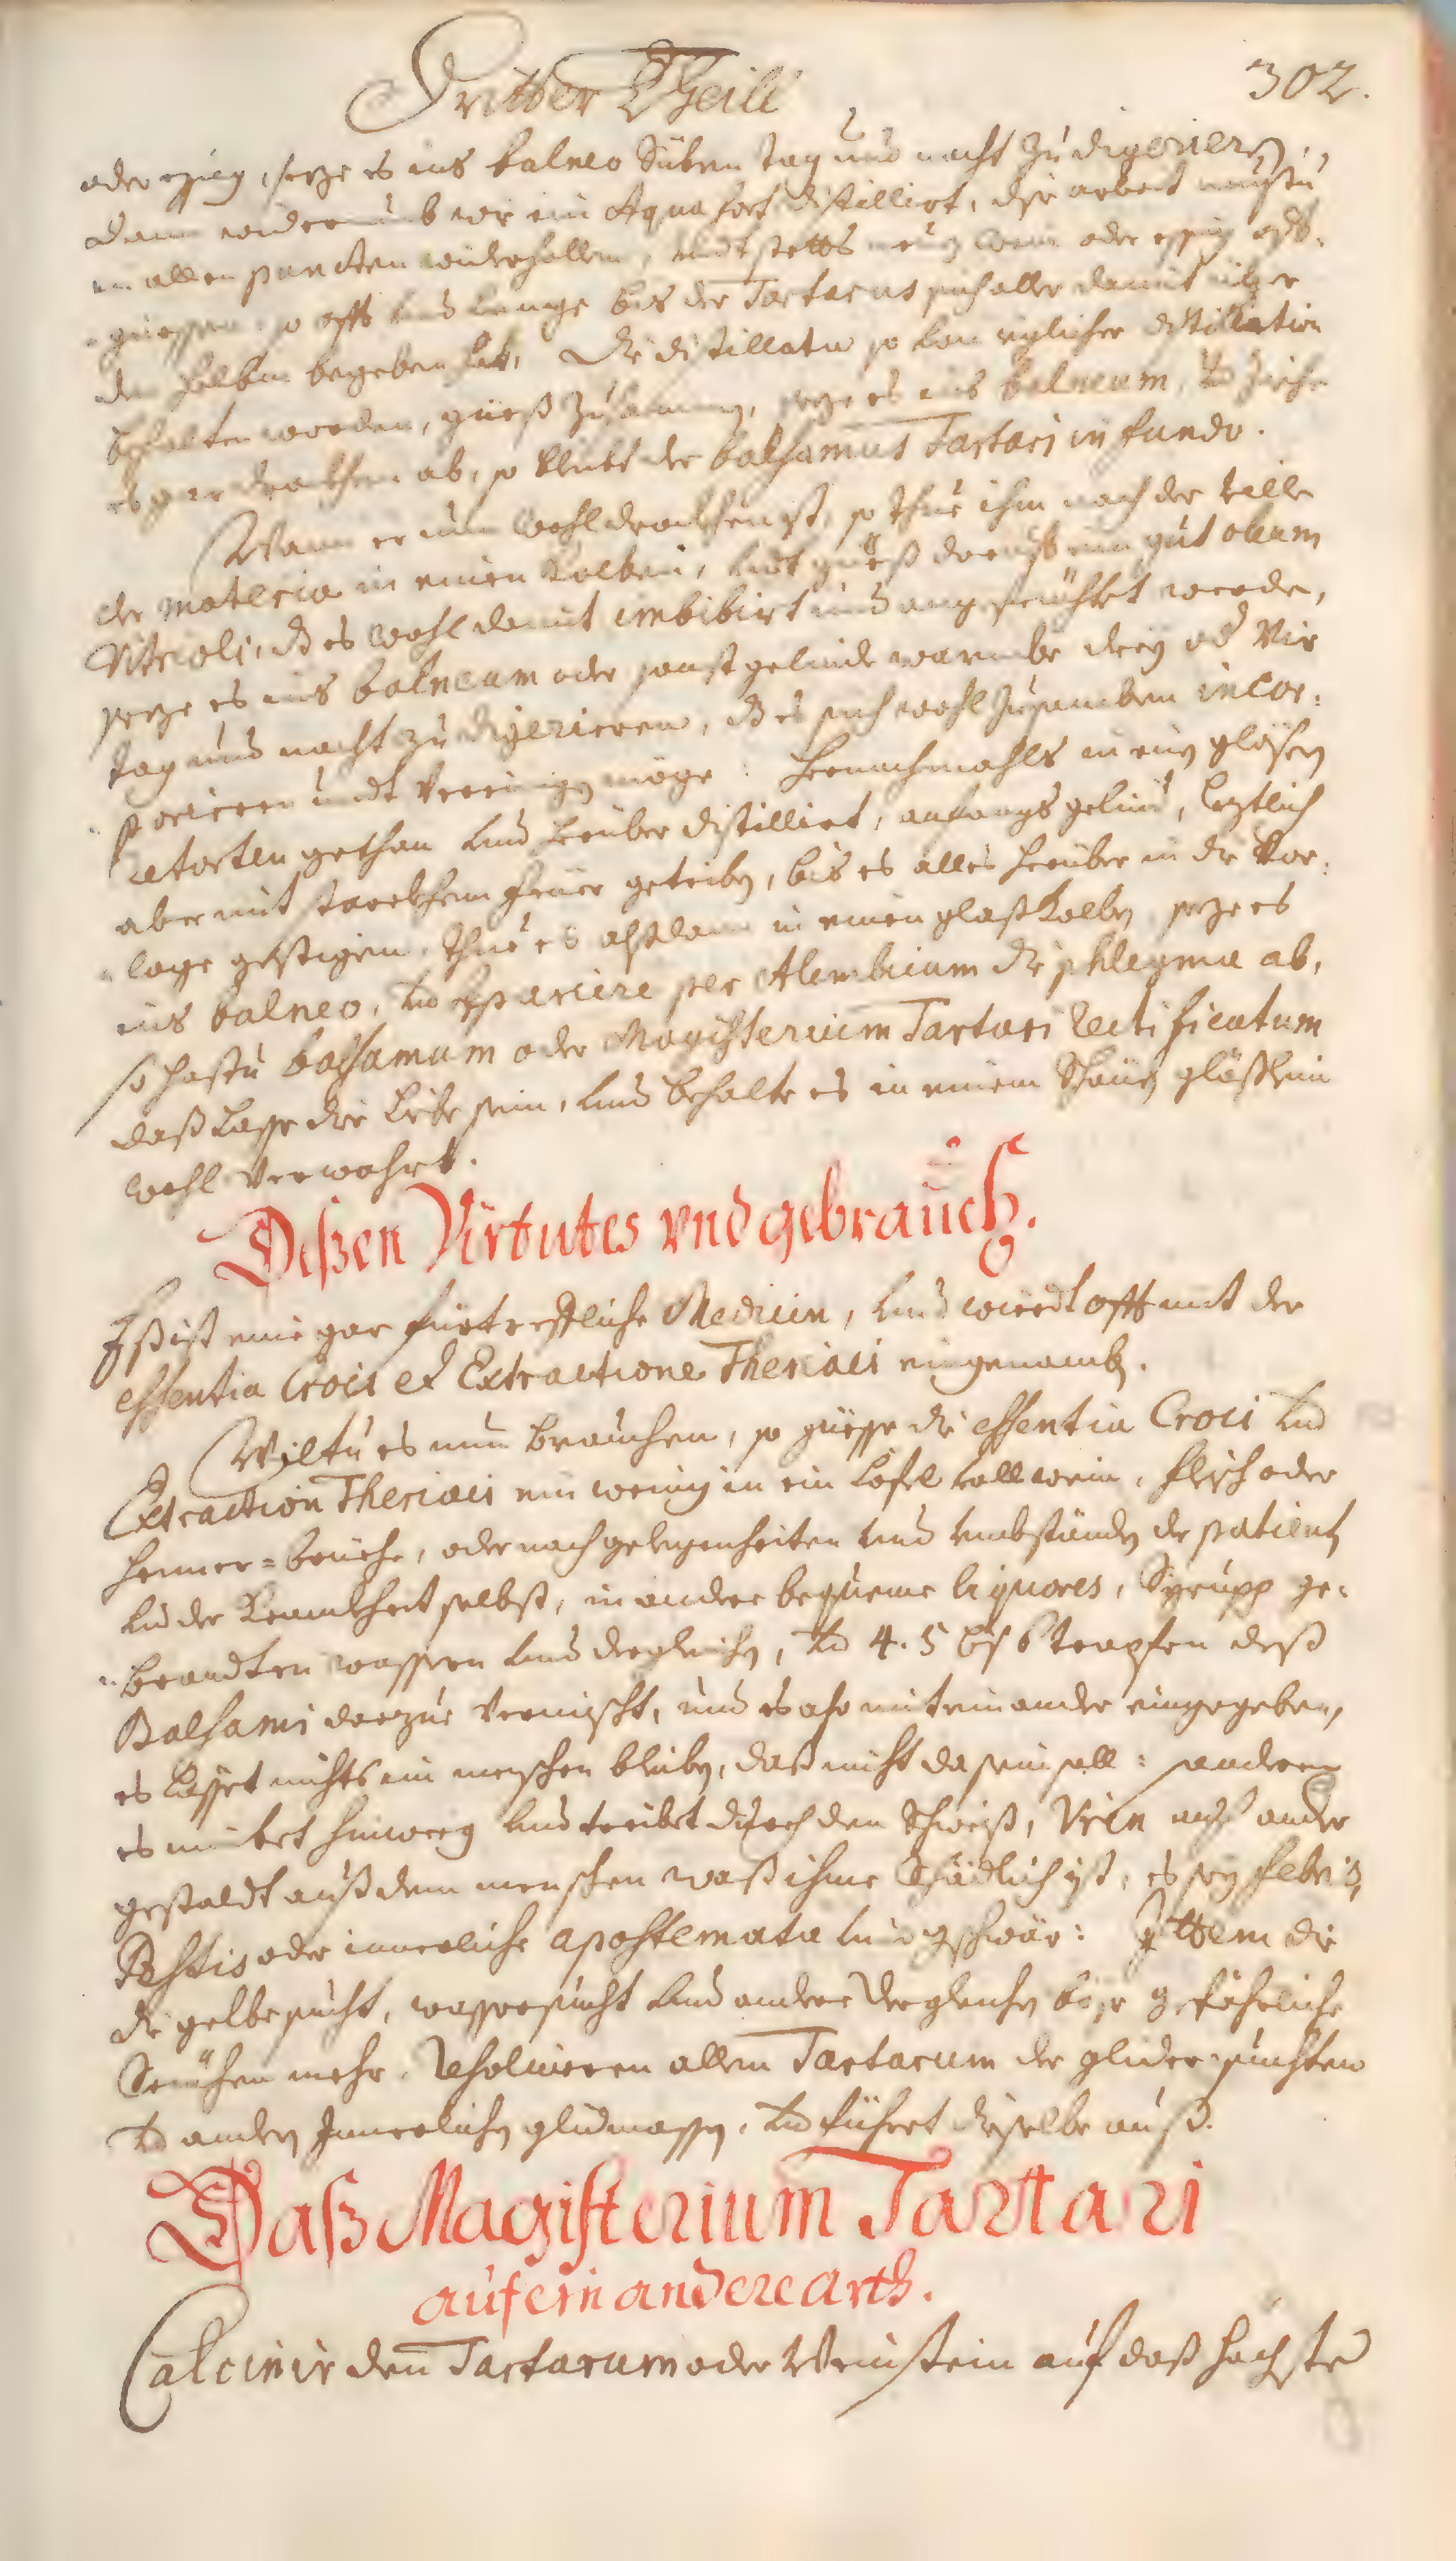 Dritter Theill
302.
oder essig, seze es ins balneo Siben tag und nacht zu digerieren,
dann widerumb wie ein Aqua fort distillirt, dise arbeit mustu
in allen puncten widerhollen, undt stetts neuen wein oder essig auf-
giessen, so offt und lange bis der Tartarus sich aller damit über
den helbm begeben hat, Die distillata so von ieglicher distillation
behalten worden, gieß zusamen, seze es ins balneum, und ziehe
es gar drockhen ab, so bleibt der balsamus Tartari in fundo.
Wann er nun wohl drockhen ist, so thue ihm nach der ville
der materia in einen Kolben, undt gieß darauf ein gut oleum
Vitrioli, daß es wohl damit imbibirt und angefeuchtet werde,
seze es ins balneum oder sonst gelinde warmbe drey od Vir
tag und nacht zu digerieren, daß es sich wohl zusamben incor-
porieren undt Vereinigen möge: hernachmahls in ein gläsen
retorten gethan und herüber distillirt, anfangs gelind, leztlich
aber mit starckhem feuer getriben, bis es alles herüber in die Vor-
lage gestigen, thue es alsdann in einen glaß Kolben, seze es
ins balneo, und separiere per Alembicum die phlegma ab,
so hastu balsamum oder Magisterium Tartari rectificatum
daß lasse dir lieb sein, und behalte es in einem gläßlein
wohl Verwahrt.
Dißen Virtutes und gebrauch.
Eß ist eine gar fürtreffliche Medicin, und wierdt offt mit der
essentia Croci et Extractione Theriaci eingenomben.
Wiltu es nun brauchen, so giesse die essentia Croci und
Extraction Theriaci ein wenig in ein Lofel voll wein, fleisch oder
henner-brüehe, oder nach gelegenheiten und umbständen der patienten
und der Kranckheit selbst, in andere bequeme liquores, Syrupp ge-
brandten wassern und dergleichen, und 4. 5 bis 6 tropfen deß
Balsami darzue Vermischt, und es also miteinander eingegeben,
es lasset nichts im menschen bleiben, daß nicht da sein soll: sondern
es nimbet hinweg und treibet durch den Schweiß, Urin auf ander
gestaldt auß dem menschen waß ihme Schädlich ist, es sey febris,
Pestis oder innerliche apostemata und geschwär: Ittem die
die gelbesucht, wassersucht und andere dergleichen böse gefährliche
Seuchen mehr, resolvieren allen Tartarum der glidersuchten
und andern Innerlichen glidmassen, und füehret dieselbe auß.
Daß Magisterium Tartari
auf ein andere arth.
Calcinir den Tartarum oder Weinstein auf daß höchste